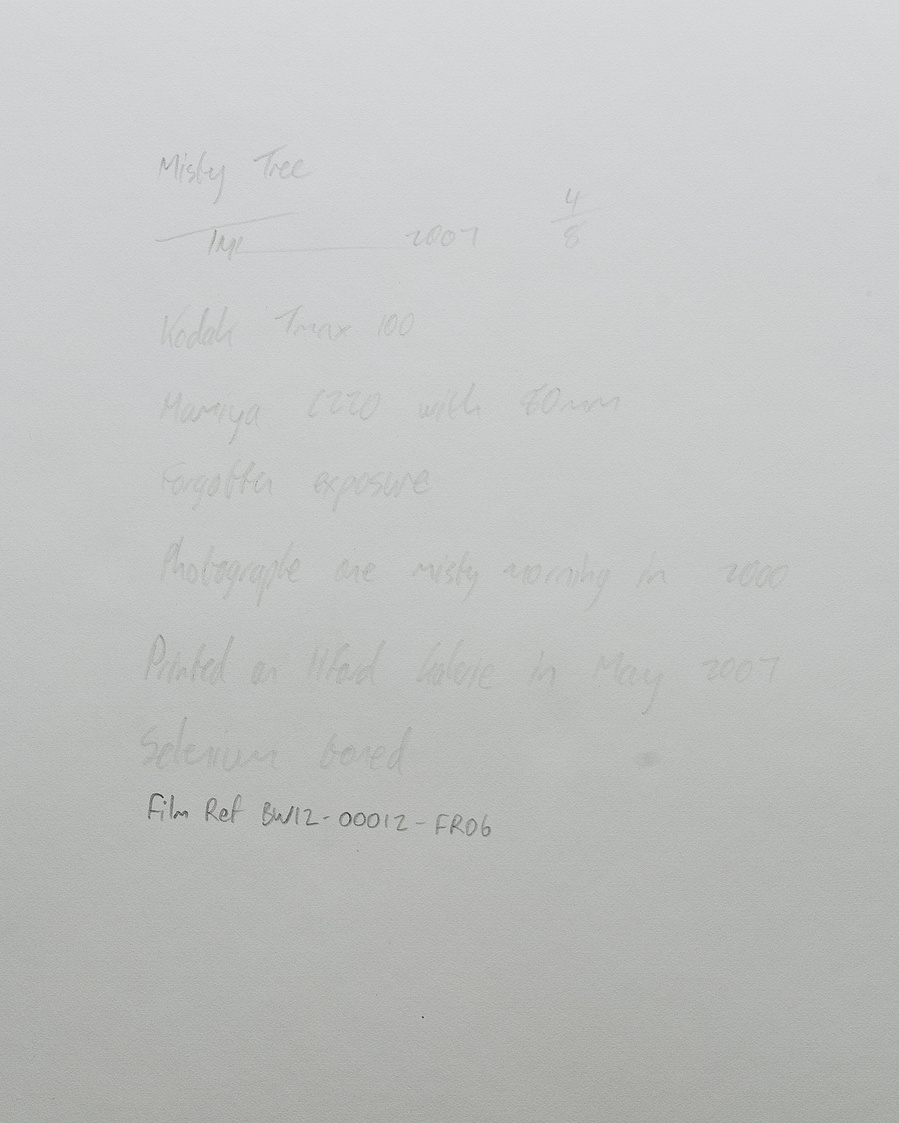 Misty Tree
2007 4/8
Kodak Tmax 100
Mamiya C220 with 80mm
Forgotten exposure
Photographe one misty morning in 2000
Printed on Ilford Galerie in May 2007
Selenium toned
Film Ref BW12-00012-FR06